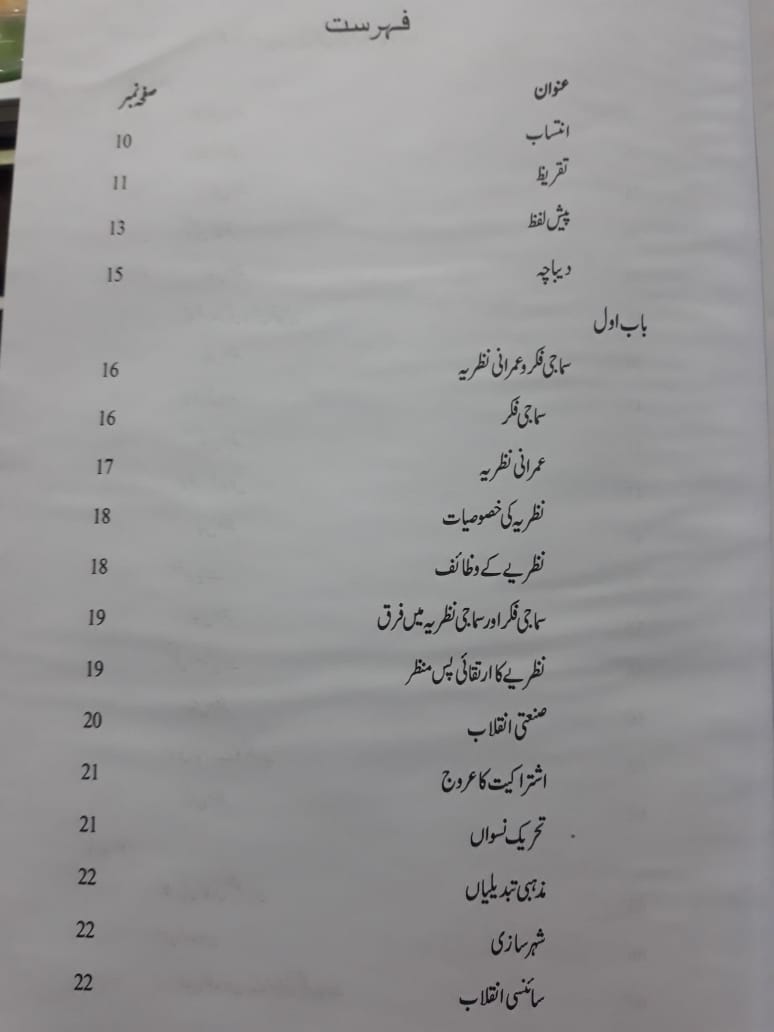 فہرست
عنوان صفحہ نمبر
انتساب 10
تقریظ 11
پیش لفظ 13
دیباچہ 15
باب اول
سماجی فکر و عمرانی نظریہ 16
سماجی فکر 16
عمرانی نظریہ 17
نظریہ کی خصوصیات 18
نظریے کے وظائف 18
سماجی فکر اور سماجی نظریہ میں فرق 19
نظریے کا ارتقائی پس منظر 19
صنعتی انقلاب 20
اشتراکیت کا عروج 21
تحریک نسواں 21
مذہبی تبدیلیاں 22
شہر سازی 22
سائنسی انقلاب 22